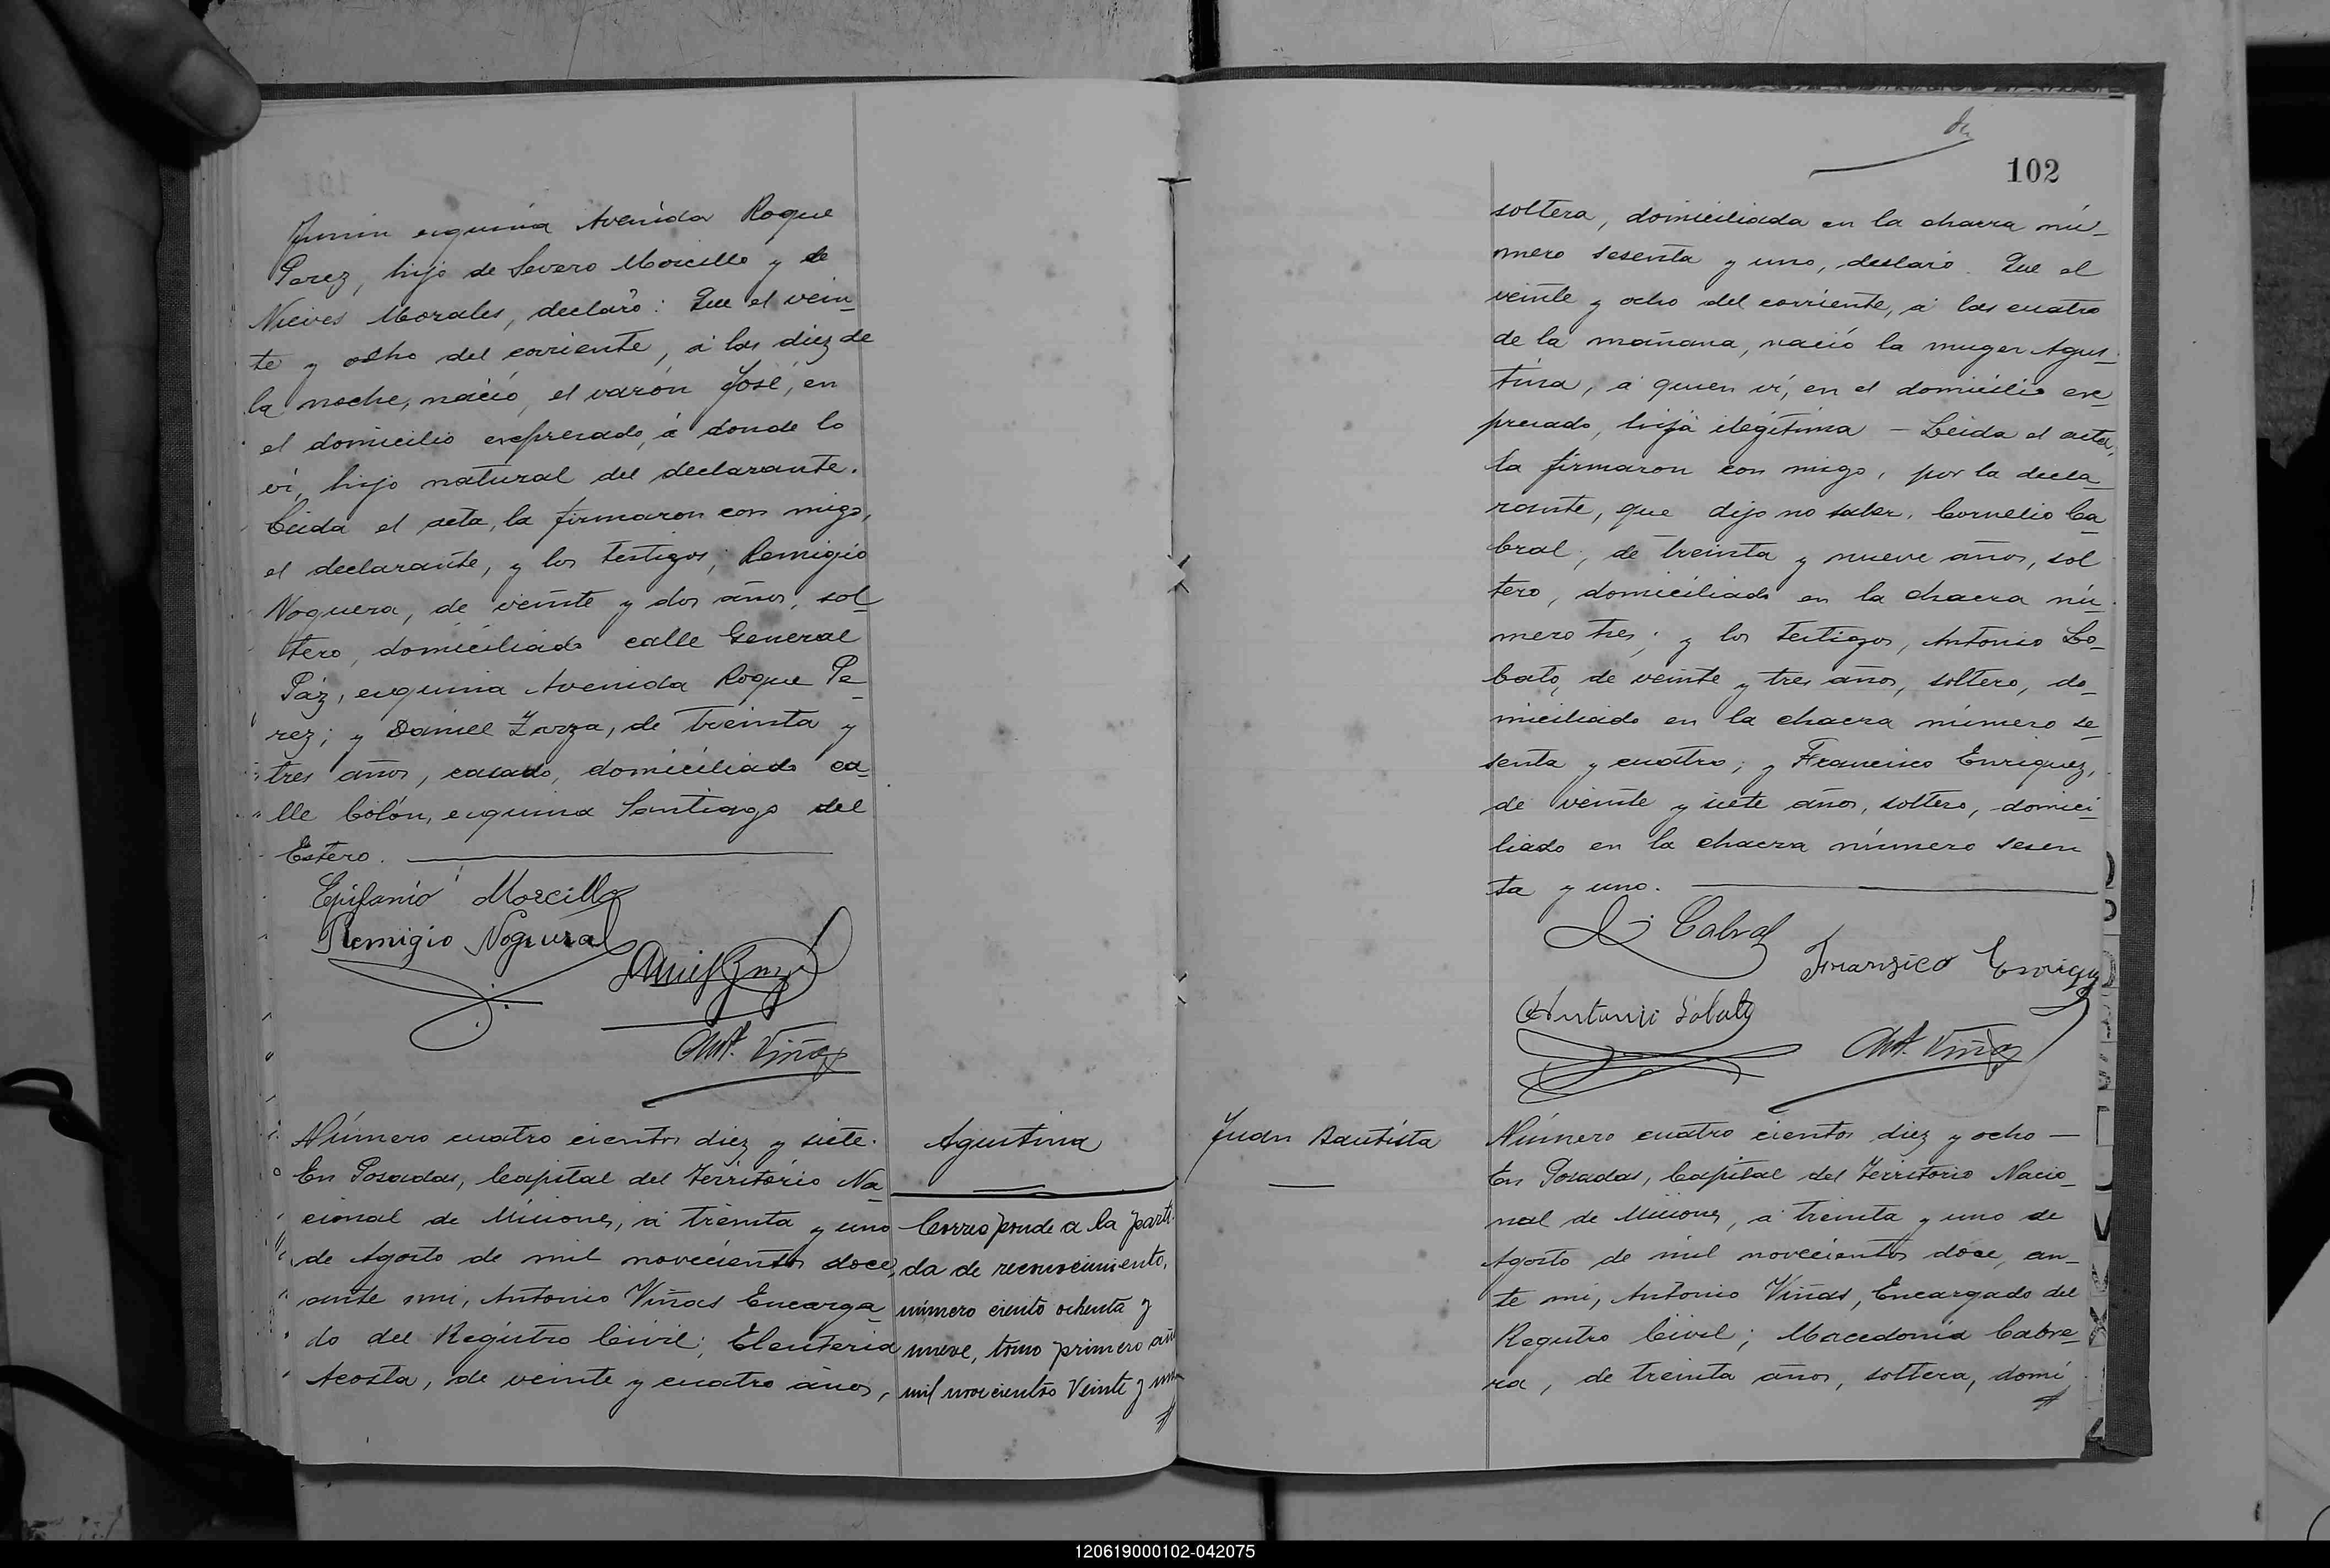 Junin esquina Avenida Roque
Perez, hijo de Severo Morcillo y de
Nieves Morales, declaró: Que el vein_
te y ocho del corriente, á las diez de
la noche, nació, el varón José, en
el domicilio expresado, á donde lo
ví, hijo natural del declarante.
Leida el acta, la firmaron con migo,
el declarante, y los testigos; Remigio
Noguera, de veinte y dos años, sol_
tero, domiciliado calle General
Páz, esquina Avenida Roque Pe_
rez; y Daniel Zarza, de treinta y
tres años, casado, domiciliado ca_
lle Colón, esquina Santiago del
Estero.
Epifanio Morcillo
Remigio Noguera
Ant. Viñas
Número cuatro cientos diez y siete.
En Posadas, Capital del Territorio Na_
cional de Misiones, á treinta y uno
de Agosto de mil novecientos doce,
ante mi, Antonio Viñas Encarga_
do del Registro Civil; Eleuteria
Acosta, de veinte y cuatro años,
Agustina
Corresponde a la parti
da de reconocimiento,
número ciento ochenta y
nueve, tomo primero año
mil novecientos veinte y uno
102
soltera, domiciliada en la chacra nú_
mero sesenta y uno, declaró. Que el
veinte y ocho del corriente, á las cuatro
de la mañana, nació la muger Agus_
tina, á quien ví, en el domicilio ex_
presado, hija ilegítima – Leida el acta,
la firmaron con migo, por la decla_
rante, que dijo no saber, Cornelio Ca_
bral, de treinta y nueve años, sol
tero, domiciliado en la chacra nú_
mero tres; y los testigos, Antonio Lo_
bato, de veinte y tres años, soltero, do_
miciliado en la chacra número se_
senta y cuatro; y Francisco Enriquez,
de veinte y siete años, soltero, domici_
liado en la chacra número sesen
ta y uno.
C. Cabral
Fransico Enriquez
Antonio Lobato
Ant. Viñas
Juan Bautista
Número cuatro cientos diez y ocho —
En Posadas, Capital del Territorio Nacio_
nal de Misiones, á treinta y uno de
Agosto de mil novecientos doce, an_
te mi, Antonio Viñas, Encargado del
Registro Civil; Macedonia Cabre_
ra, de treinta años, soltera, domi
120619000102-042075